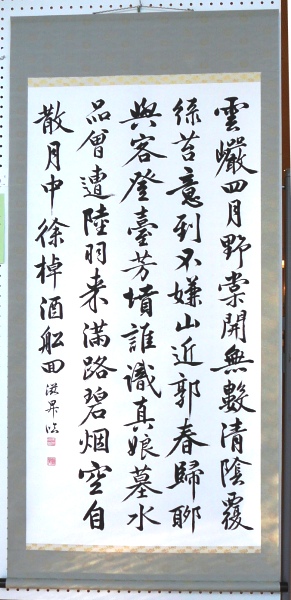 雲巖四月野棠開無數清陰覆
綠苔意到不嫌山近郭春歸聊
與客登臺芳墳誰識真娘墓水
品曾遭陸羽来滿路碧烟空自
散月中徐棹酒船回